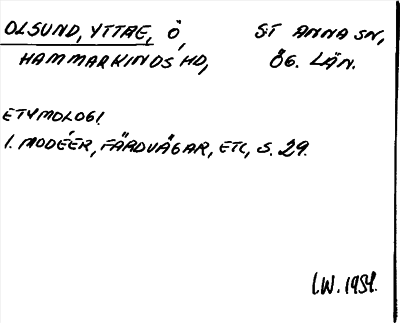 OLSUND, YTTRE, Ö, ST ANNA SN,
HAMMARKINDS HD, ÖG. LÄN.
ETYMOLOGI
1. MODÉER, FÄRDVÄGAR, ETC, S. 29.
LW. 1954.